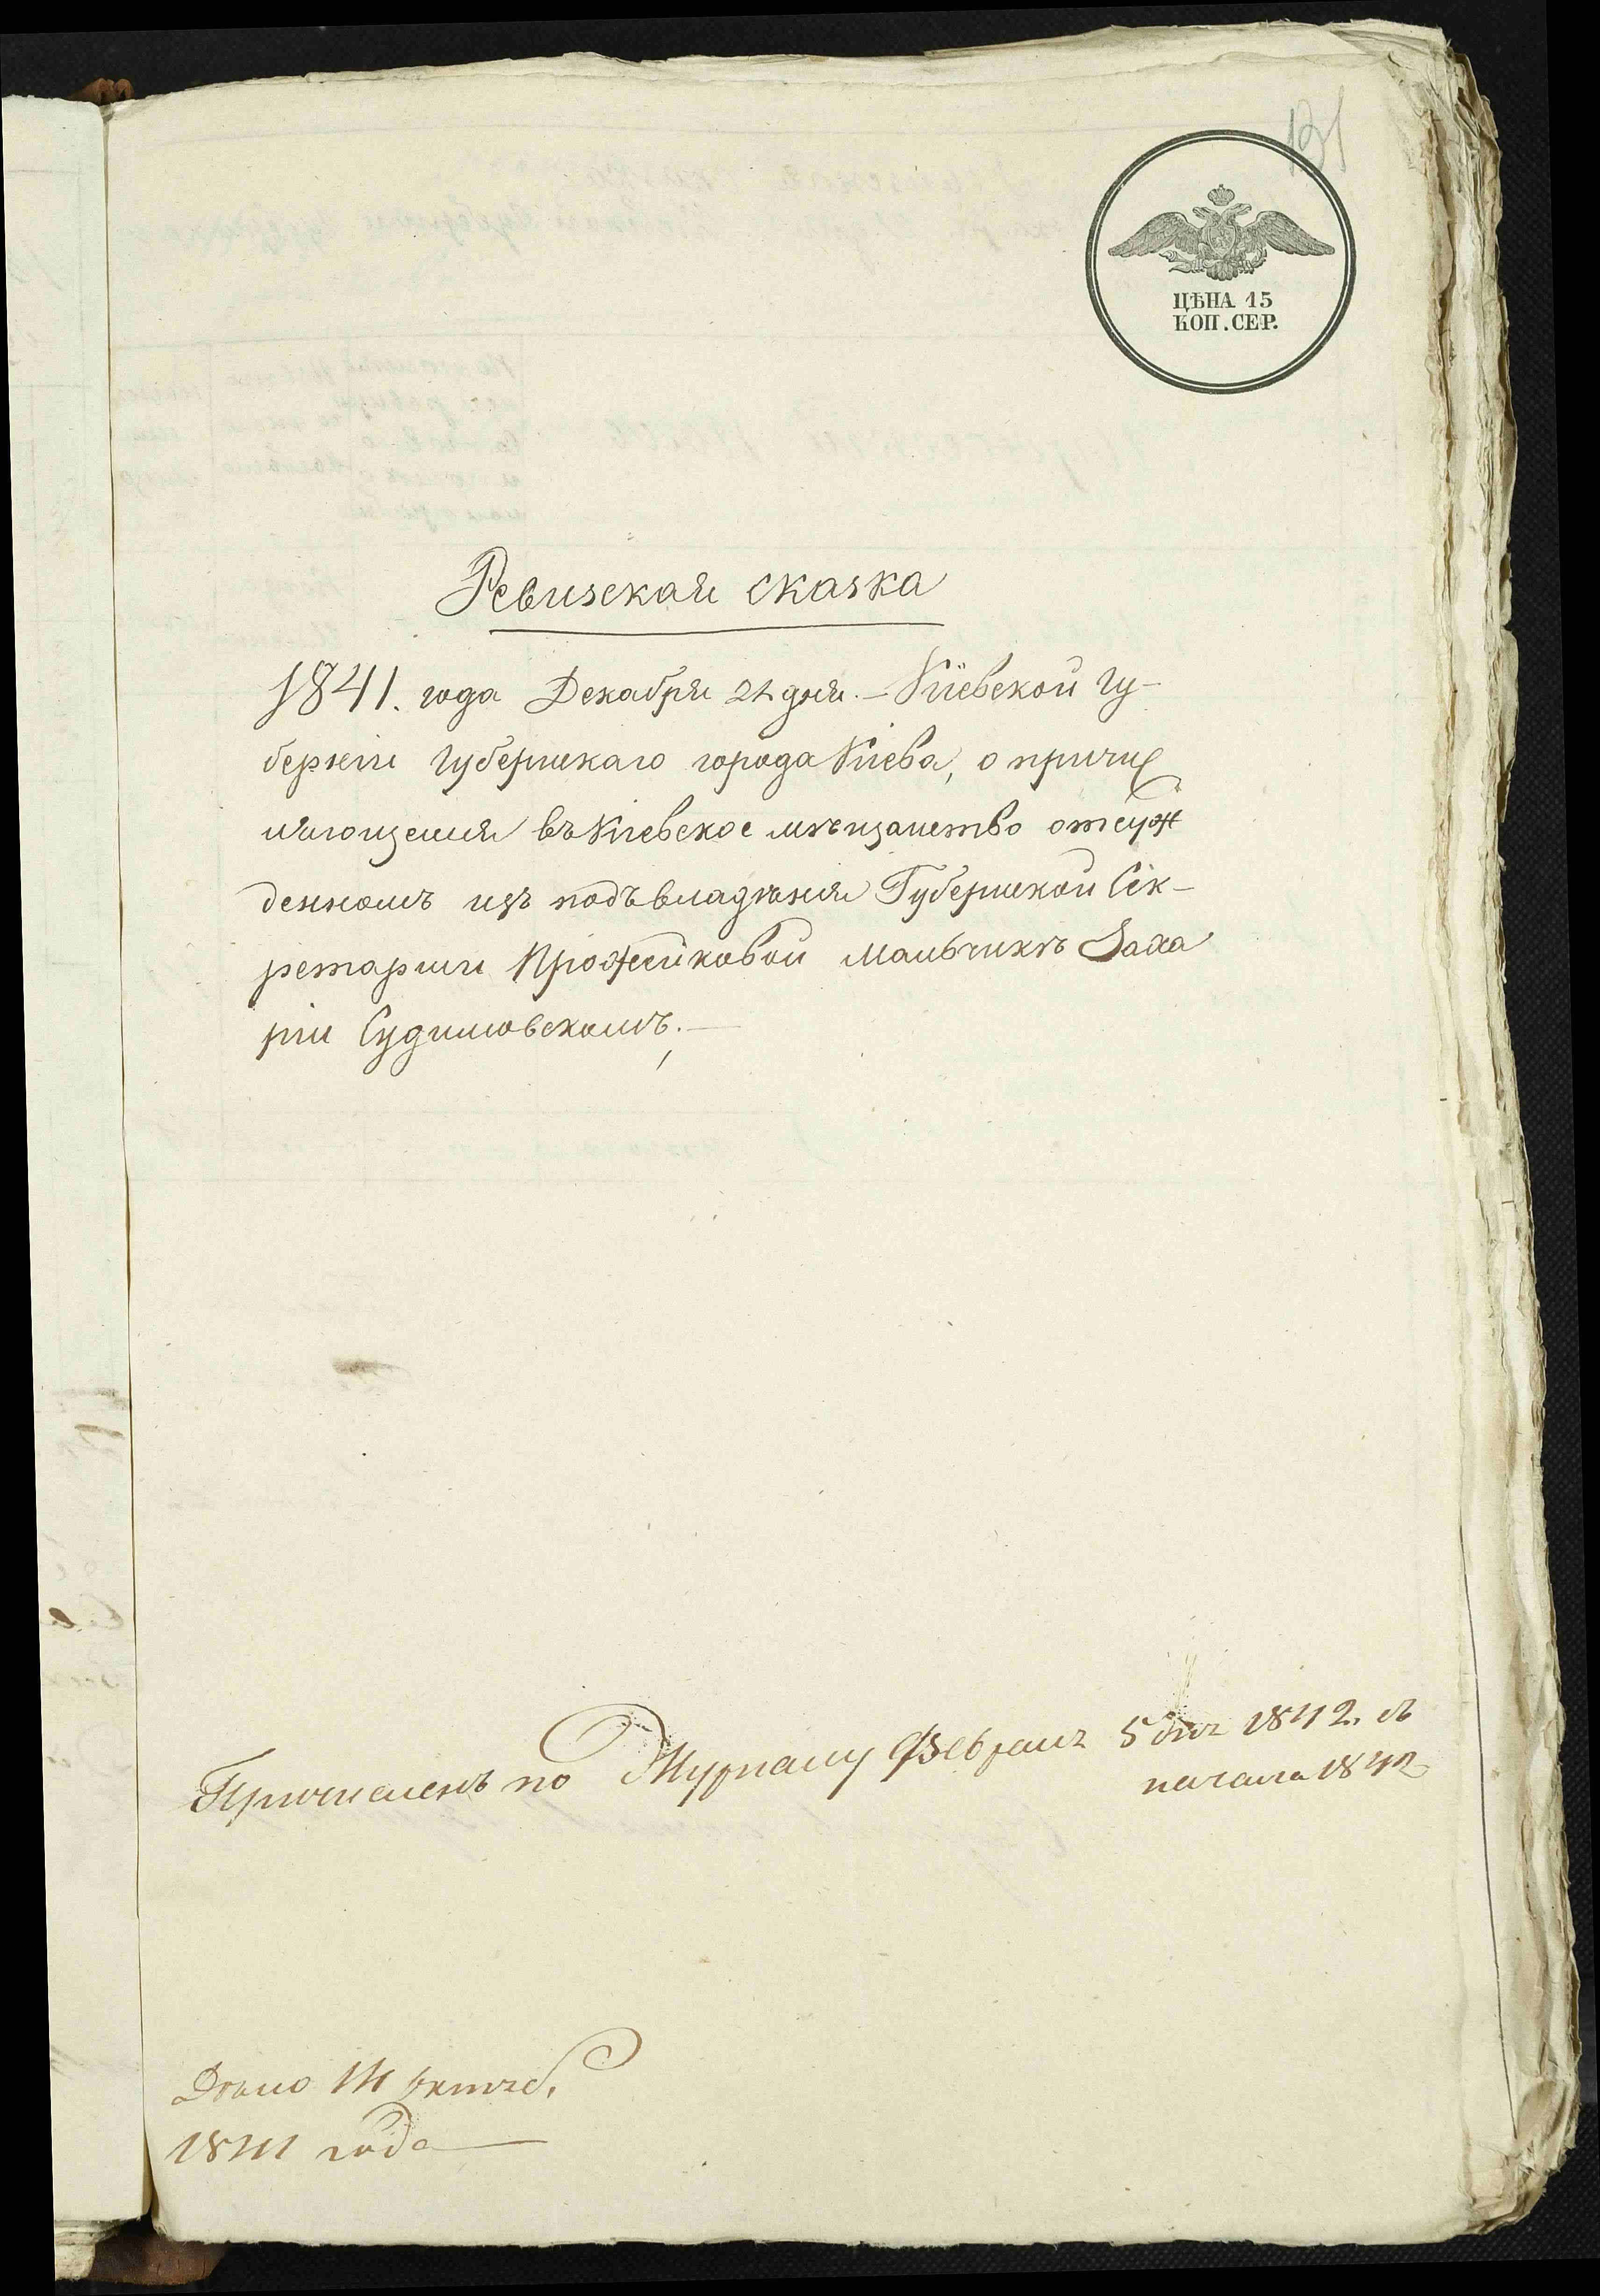 131
ЦѢНА 15
КОП. СЕР.
Ревизская сказка
1841. года Декабря 21 дня. – Кіевской гу-
берніи губернскаго города Кіева, о причи
сляющемся въ Кіевское мѣщанство отсуж
денномъ изъ подъ владѣнія Губернской Сек-
ретарши мальчикѣ Заха
ріи Судимовскомъ. –
Причисленъ по Журналу Февраля 5 дня 1842. съ
начала 1842
Дѣло 141 октяб.
1841 года